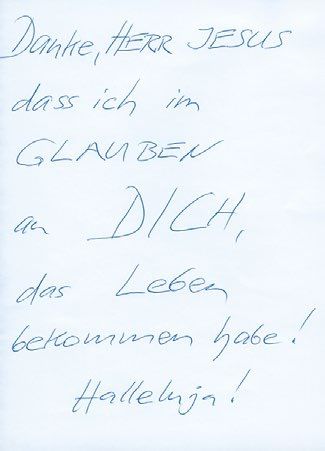 Danke, HERR JESUS
dass ich im
GLAUBEN
an DICH,
das Leben
bekommen habe!
Halleluja!